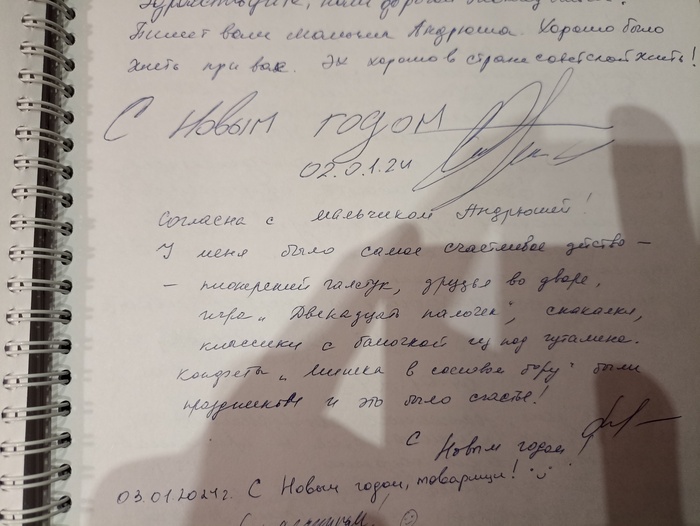 Здравствуйте, наш дорогой
Пишет вам мальчик Андрюша. Хорошо было
жить при вас. Эх хорошо в стране советской жить!
С Новым годом
02.01.24
Согласна с мальчиком Андрюшей!
У меня было самое счастливое детство —
— пионерский галстук, друзья во дворе,
игра „Двенадцать палочек", скакалки,
классики с баночкой из под гуталина.
Конфеты „Мишка в сосновом бору" были
праздником и это было счастье!
С Новым годом
03.01.2024г. С Новым годом, товарищи!
С